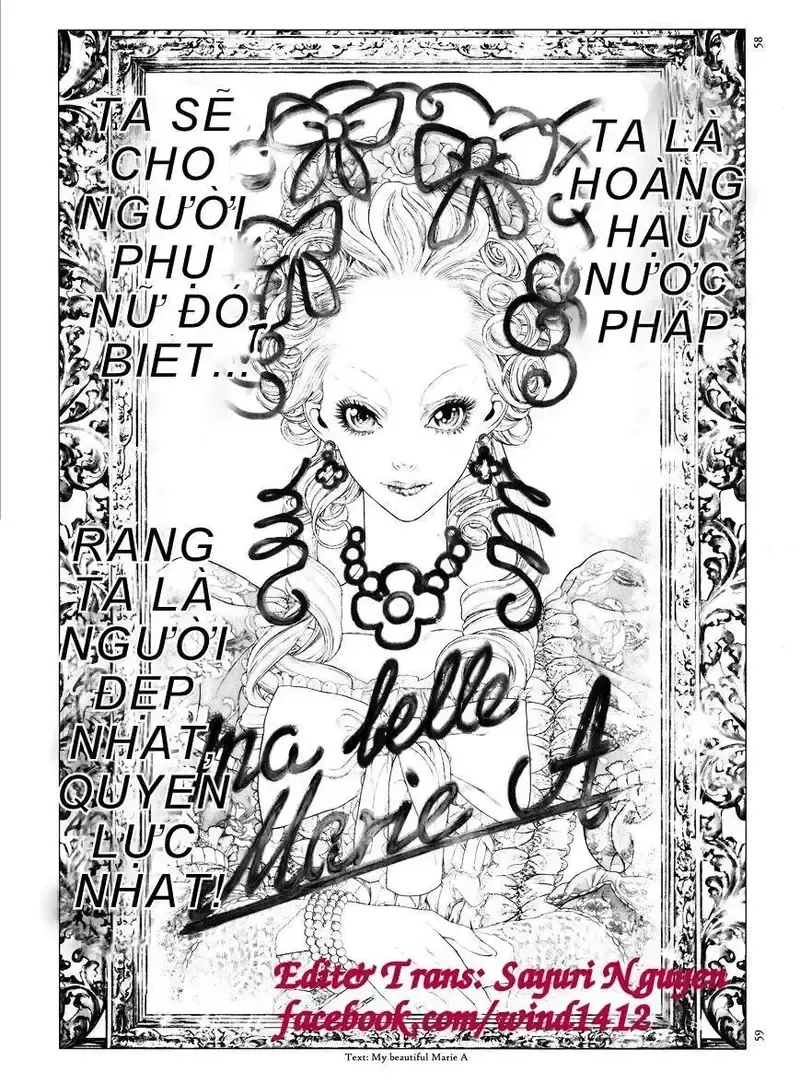 58
TA LÀ
HOÀNG
HẠU
NƯỚC
PHÁP
TA SẼ
CHO
NGƯỜI
PHỤ
NỮ ĐÓ
BIET...
RANG
TA LÀ
NGƯỜI
ĐẸP
NHAT,
QUYEN
LỰC
NHAT!
ma belle
Marie A
Edit& Trans: Sayuri Nguyen
facebook.com/wind1412
59
Text: My beautiful Marie A